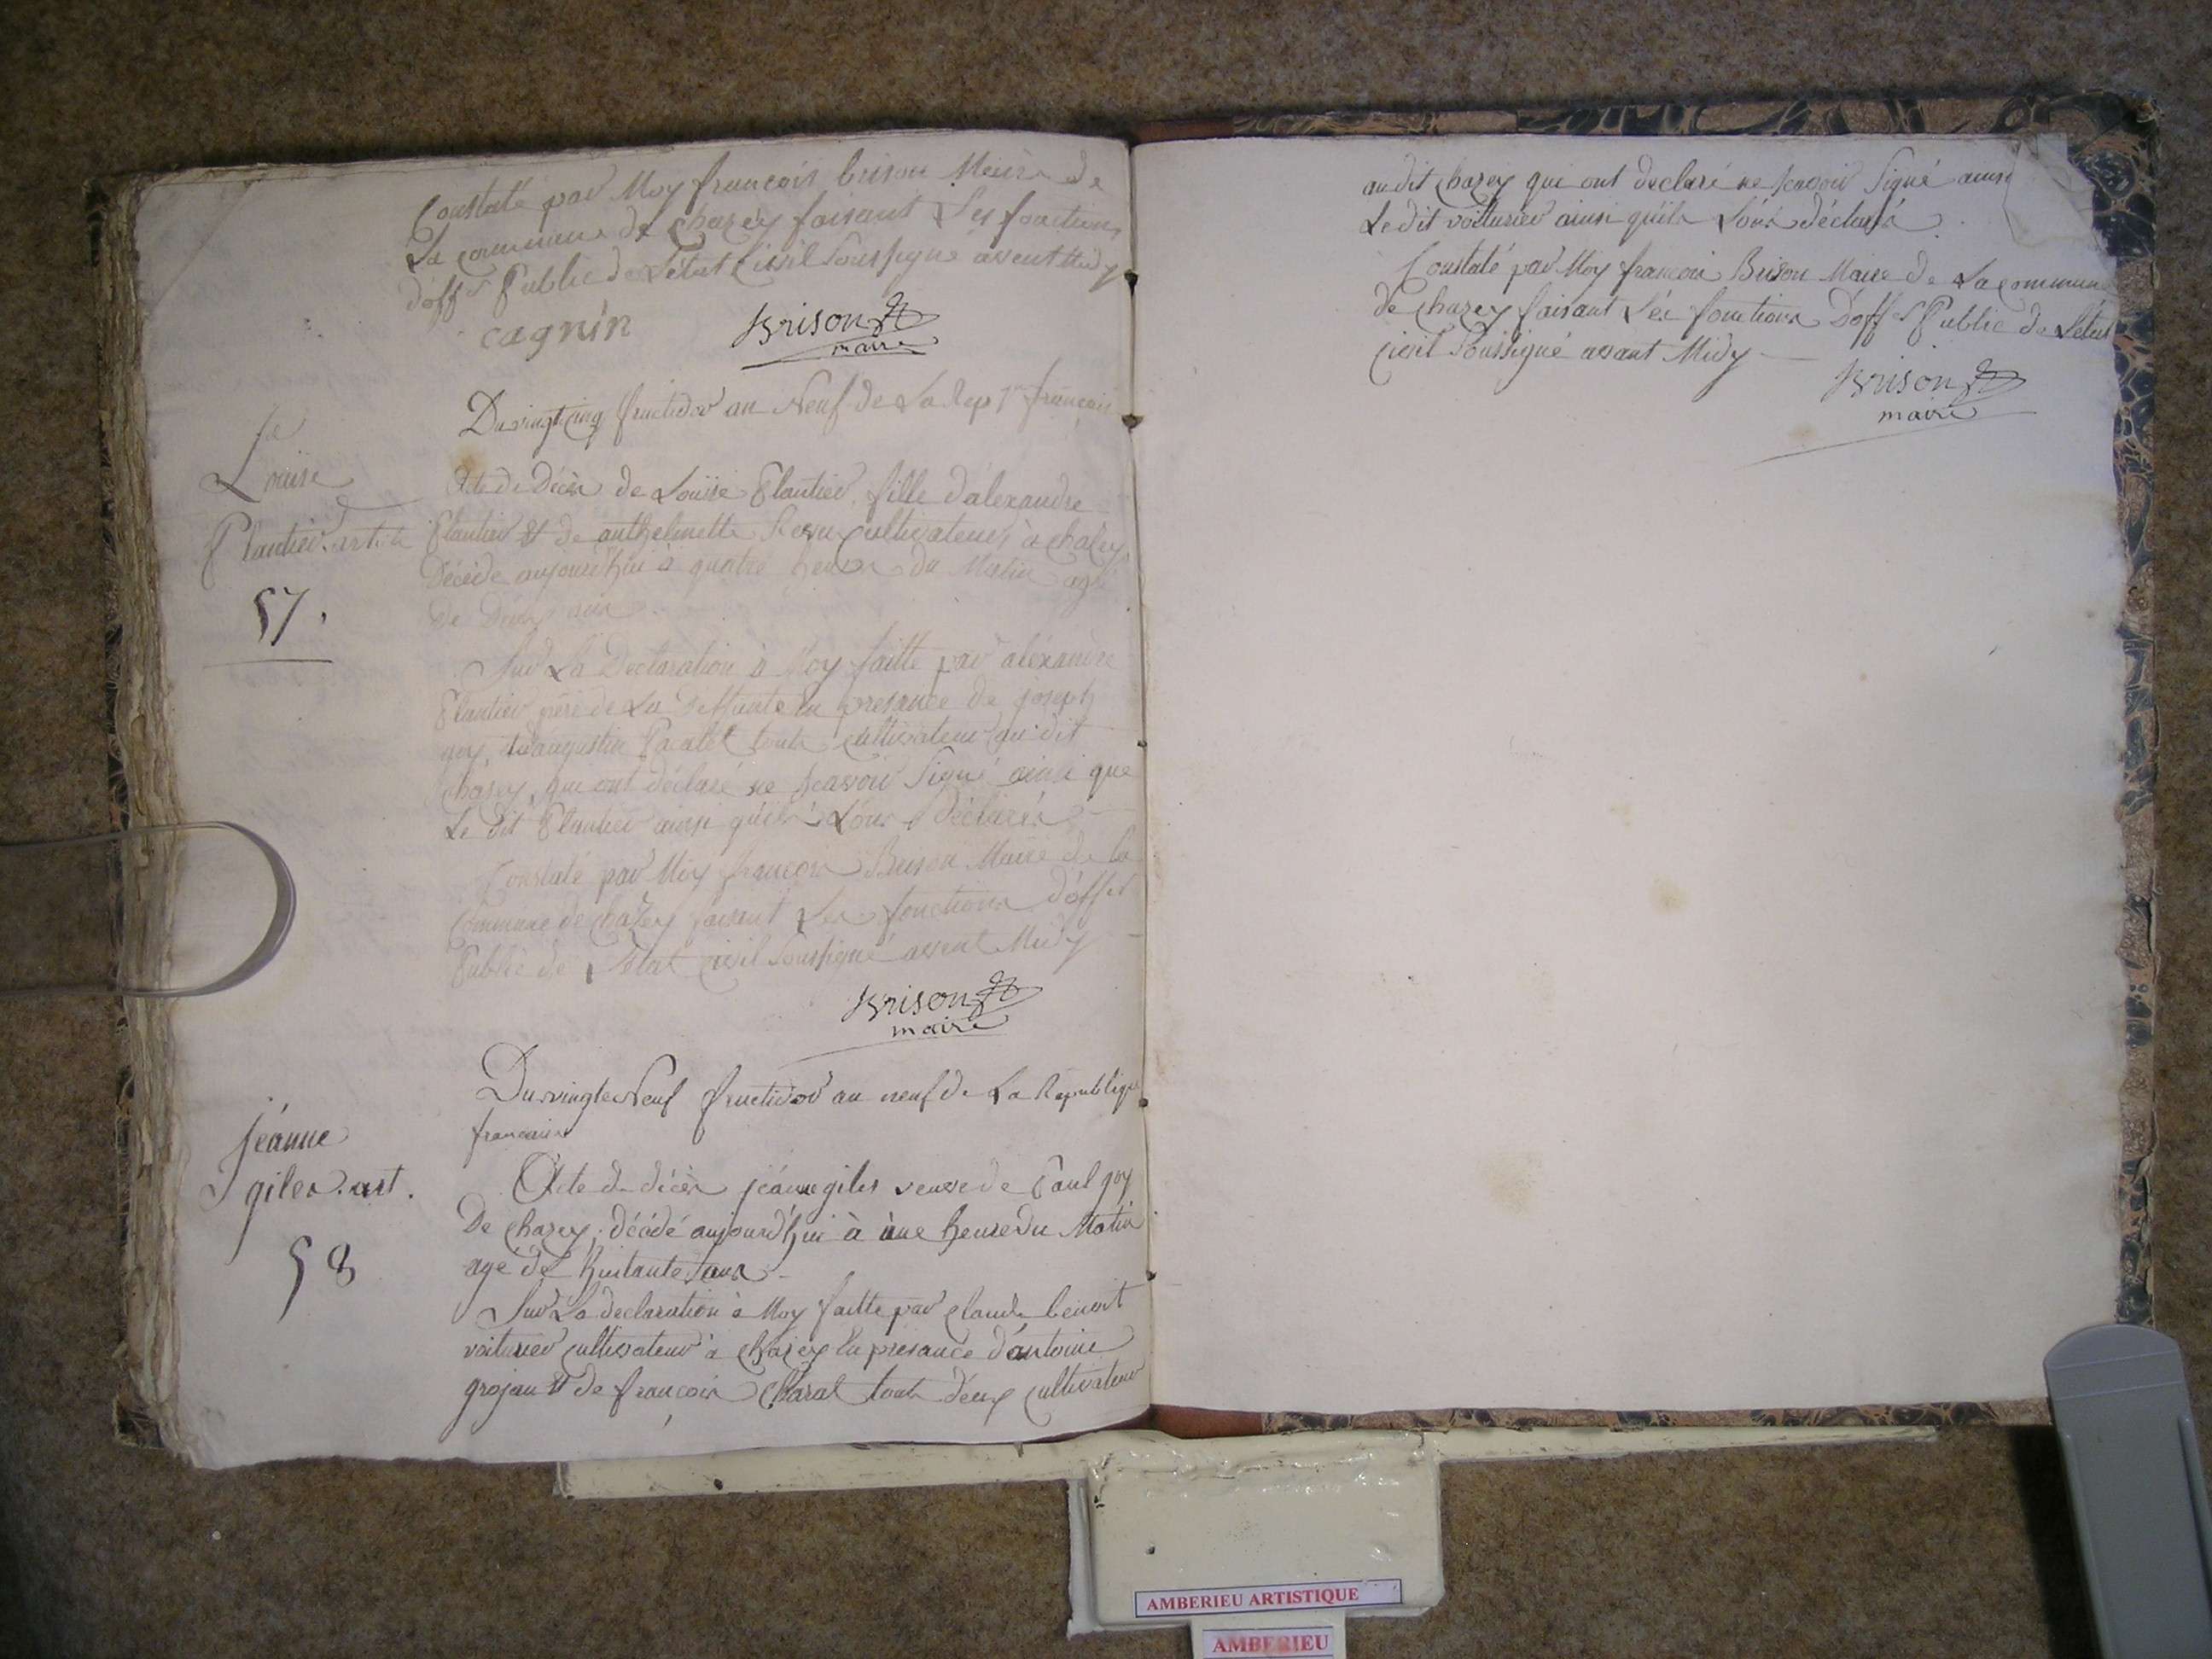 Constaté par Moy francois brison Maire de
La commune de Chazey faisant Les fonctions
d'offer Public de L'état Civil Soussigné avant Midy
cagnin
Brison
maire
Du vingt cinq fructidor an Neuf de La Rep française
Louise
Plantier. article
57.
Acte de Décès de Louise Plantier fille d'alexandre
Plantier et de anthelmette cultivateurs à chazey
Décédé aujourd'hui à quatre heures du Matin agé
de Deux
Sur La Declaration à Moy faitte par aléxandre
Plantier père de La deffunte En presance de joseph
goy, et augustin Pacalet touts cultivateur au dit
chazey, qui ont déclaré ne scavoir Signé ainsi que
Le dit Plantier ainsi quils L'ons Déclarés
Constaté par Moy francois Brison Maire de la
Commune de Chazey faisant Les fonctions d'offer
Public de L'état civil Soussigné avant Midy
Brison
maire
Du vingte Neuf fructidor an neuf de La République
francaise
jéanne
giles. art.
58
Acte de décès jéanne giles veuve de Paul goy
De Chazey, décédé aujourd'hui à une heure du Matin
agé de huitante ans
Sur La declaration à Moy faitte par Claude benoit
voiturier cultivateur à chazey En presance d'antoine
grojan et de francois Charal touts deux cultivateur
au dit chazey qui ont declaré ne scavoir Signé ainsi
Le dit voiturier ainsi quils Lons déclaré
Constaté par Moy francois Brison Maire de La commune
de chazey faisant Les fonctions D'offer Public de L'état
civil Soussigné avant Midy
Brison
maire
AMBERIEU ARTISTIQUE
AMBERIEU